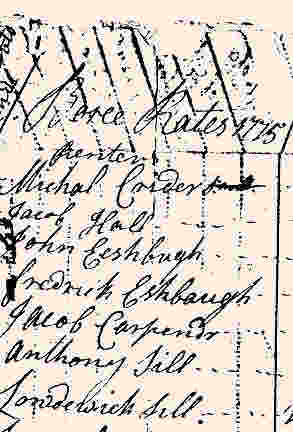 Rates 1775
Renters
Michal Corder
Jacob Hall
John Eshbugh
Fredrick Eshbaugh
Jacob Carpendr
Anthony Sill
Lowdewick Sill